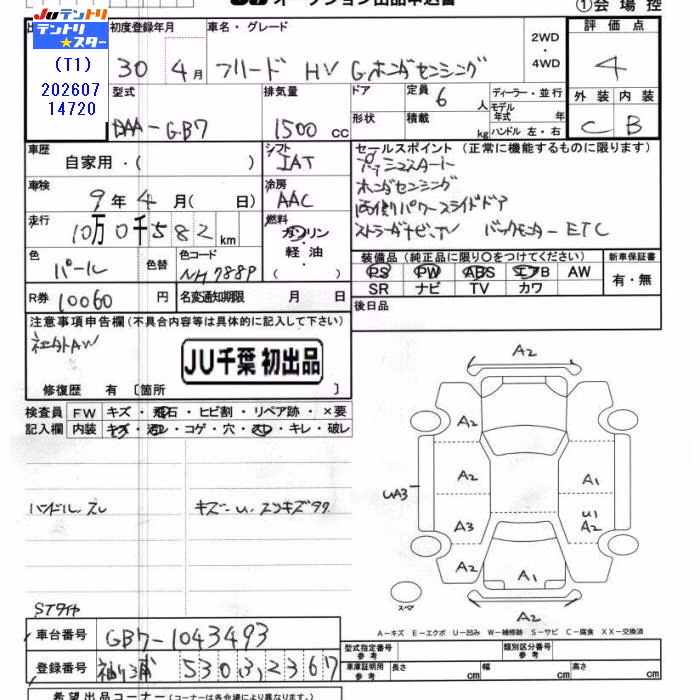 JUテントリ
テントリ★スター
(T1)
202607
14720
JU オークション出品申込書
①会場控
初度登録年月
車名・グレード
2WD・4WD
評価点
30 4月
フリード HV G ホンダセンシング
4
型式
排気量
ドア
定員
6人
ディーラー・並行
外装
内装
DAA-GB7
1500cc
形状
積載
kg
モデル年式
年式
ハンドル 左・右
C
B
車歴
自家用・( )
シフト
IAT
セールスポイント (正常に機能するものに限ります)
プッシュスタート
車検
9年4月( 日)
冷房
AAC
ホンダセンシング
両側パワースライドドア
走行
10万0千582km
燃料
ガソリン・軽油・( )
ストラーダナビ.TV バックモニター ETC
色
パール
色替
色コード
NH788P
装備品(純正品に限り○をつけてください)
新車保証書
PS PW ABS エアB AW
有・無
SR ナビ TV カワ
R券
10060円
名変通知期限 月 日
後日品
注意事項申告欄(不具合内容等は具体的に記入して下さい)
社外AW
JU千葉 初出品
修復歴 有〔箇所 〕
検査員記入欄
FW キズ・飛石・ヒビ割・リペア跡・×要
内装 キズ・汚レ・コゲ・穴・スレ・キレ・破レ
ハンドルスレ
キズ U. スリキズ多々
STタイヤ
A2
A2
A2
A1
UA3
A3
U1
A2
A2
A1
スペア
A2
A-キズ E-エクボ U-凹み W-補修跡 S-サビ C-腐食 XX-交換済
車台番号
GB7-1043493
登録番号
袖ヶ浦 530 り 2367
型式指定番号
参考
類別区分番号
参考
車庫証明用
参考
長さ cm
幅 cm
高さ cm
希望出品コーナー(コーナーは各会場により異なります。)